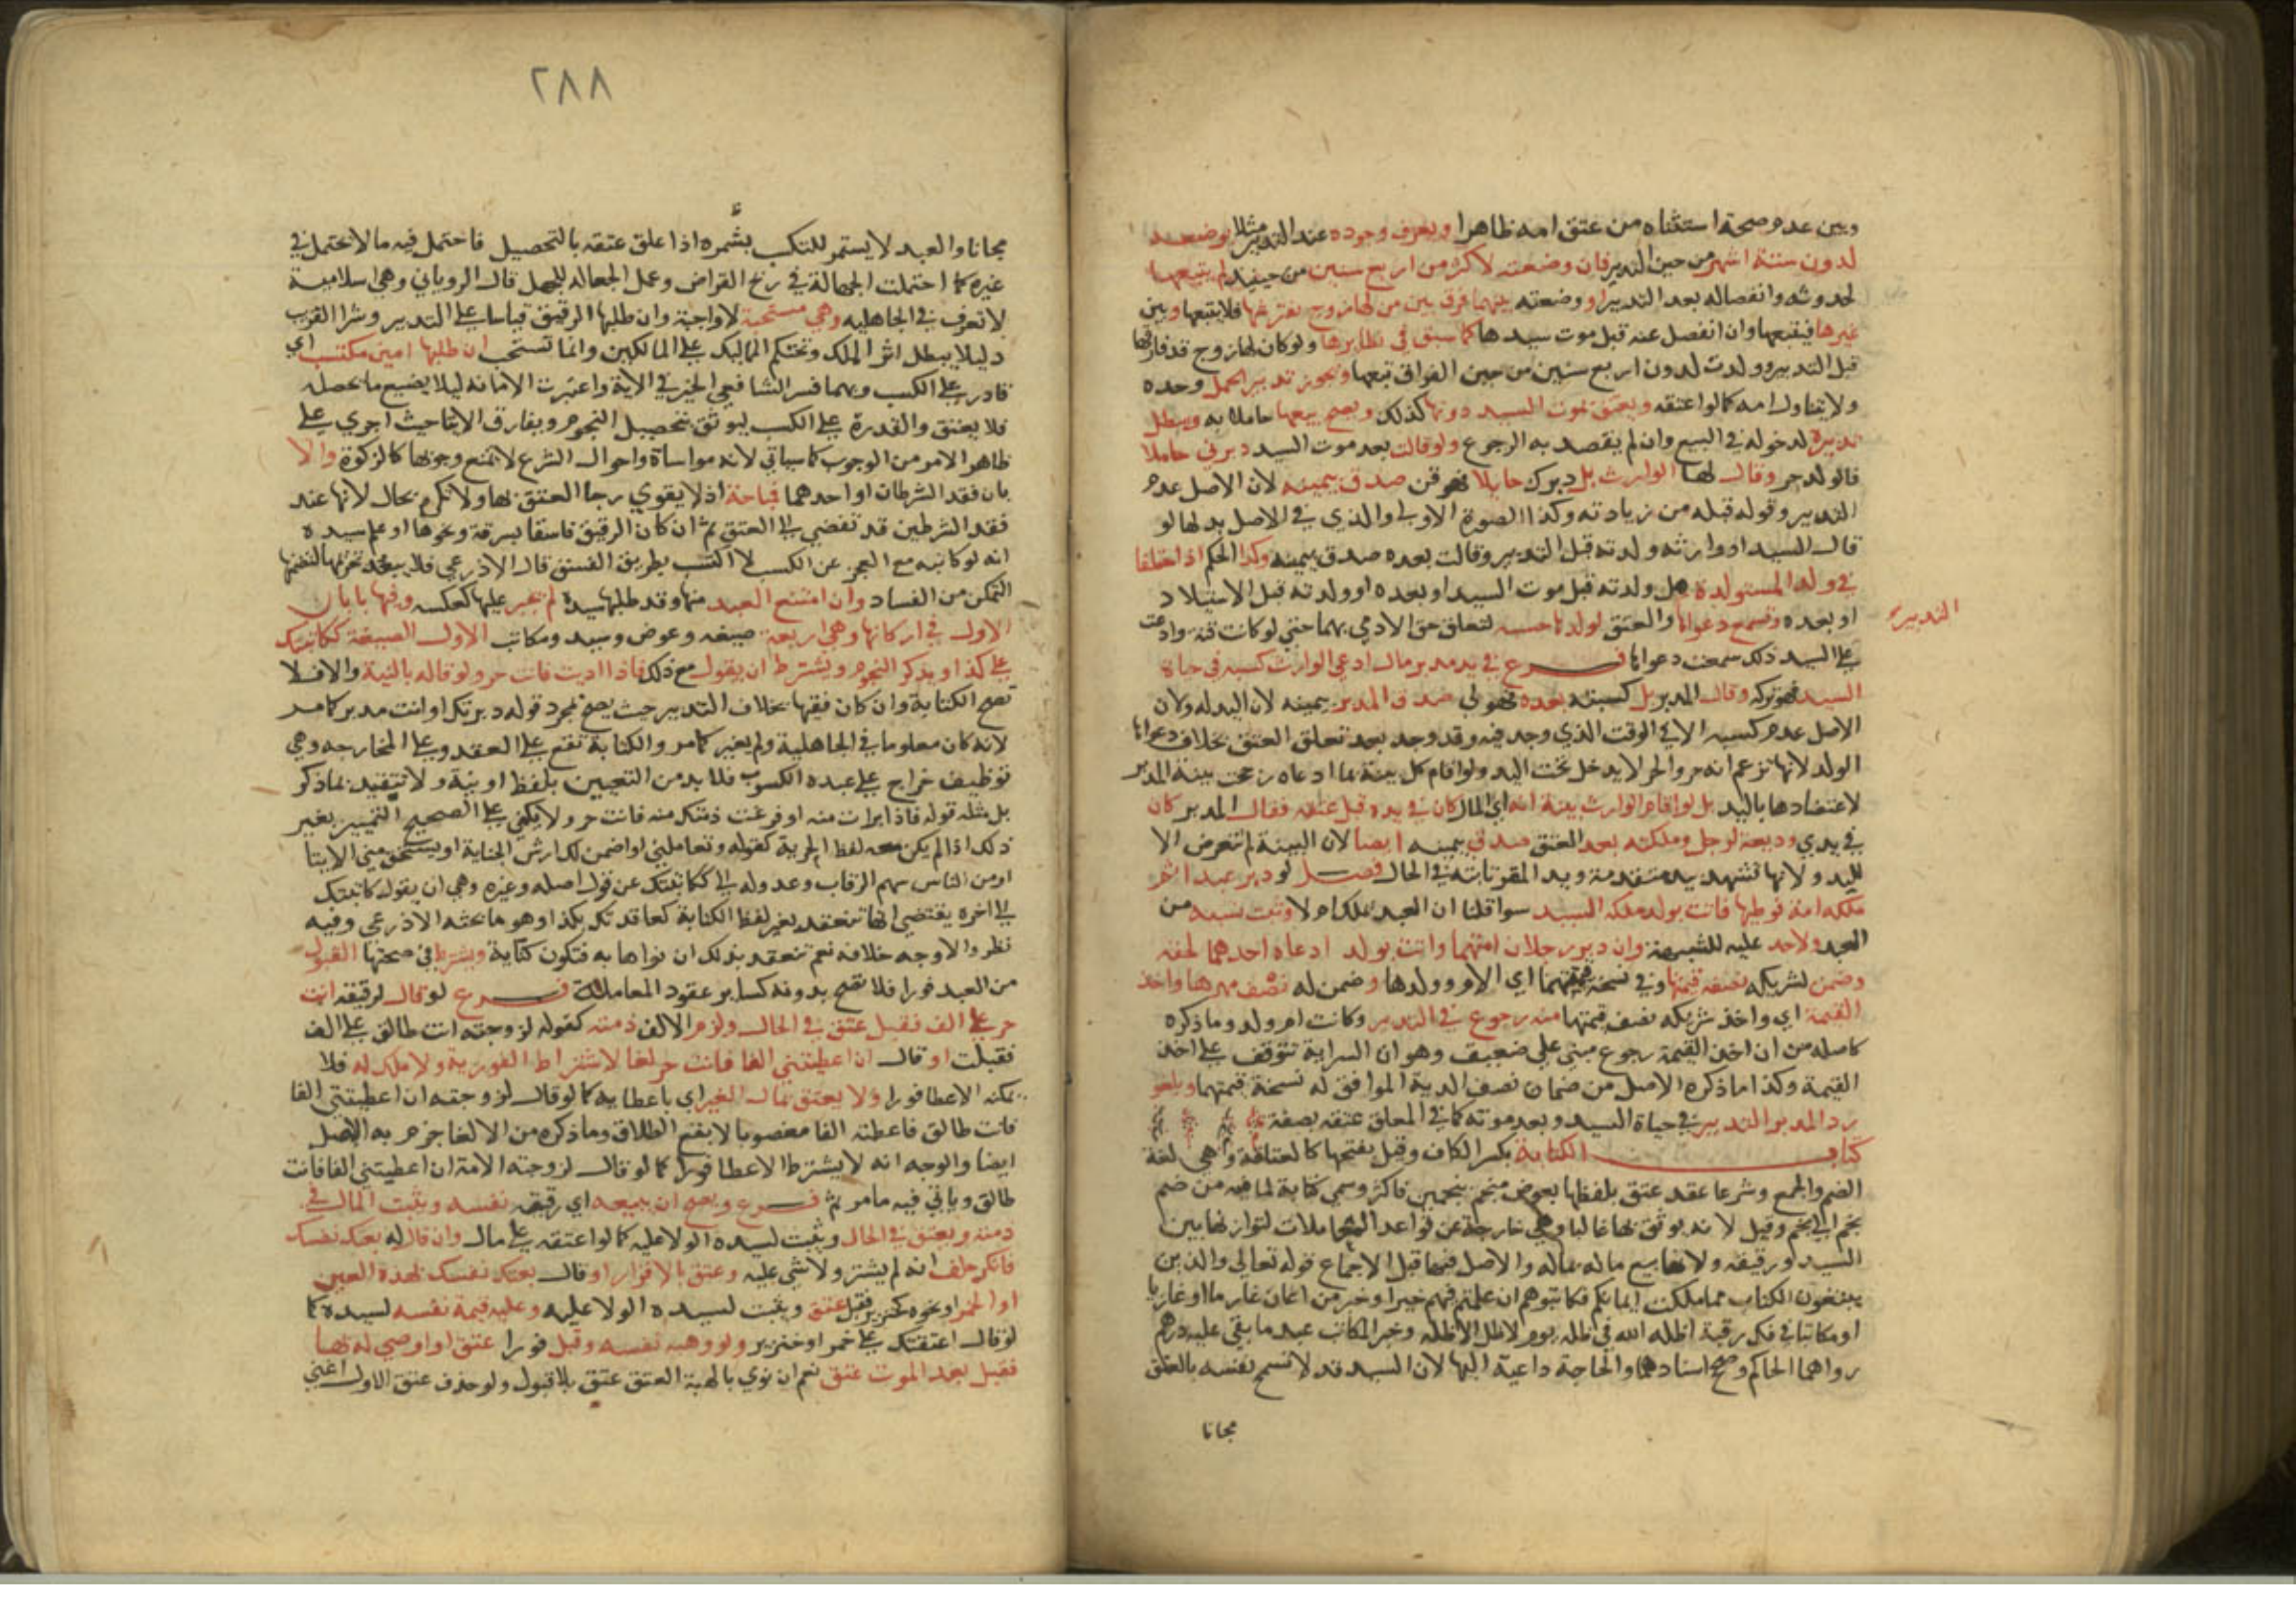 وبين عدم صحة استثناه من عتق امه ظاهرا ويعرف وجوده عند التدبير مثلا بوضعه
لدون ستة اشهر من حين التدبير فان وضعته لاكثر من اربع سنين من حينئذ لم يتبعها
لحدوثه وانفصاله بعد التدبير او وضعته بينهما فرق بين من لها زوج يفترشها فلا يتبعها وبين
غيرها فيتبعها وان انفصل عنه قبل موت سيدها كما سبق في نظايرها ولو كان لها زوج قد فارقها
قبل التدبير وولدت لدون اربع سنين من حين الفراق تبعها ويجوز تدبير الحمل وحده
ولا يتناول امه كما لو اعتقه ويعتق بموت السيد دونها كذلك ويصح بيعها حاملا به ويبطل
تدبيره لدخوله في البيع وان لم يقصد به الرجوع ولو قالت بعد موت السيد دبرني حاملا
فالولد حر وقال لها الوارث بل دبرك حايلا فهو قن صدق بيمينه لان الاصل عدم
التدبير وقوله قبله من زيادته وكذا الصورة الاولى والذي في الاصل بدلها لو
قال السيد او وارثه ولدته قبل التدبير وقالت بعده صدق بيمينه وكذا الحكم اذا اختلفا
في ولد المستولدة هل ولدته قبل موت السيد او بعده او ولدته قبل الاستيلاد
او بعده وتسمع دعواها والعتق لولدها حسبه لتعلق حق الادمي بهما حتي لو كانت قنة وادعت
التدبير
علي السيد ذلك سمعت دعواها فرع في يد مدبر مال ادعي الوارث كسبه في حياة
السيد فهو تركه وقال المدبر بل كسبته بعده فهو لي صدق المدبر بيمينه لان اليد له ولان
الاصل عدم كسبه الا في الوقت الذي وجد فيه وقد وجد بعد تعلق العتق بخلاف دعواها
الولد لانها تزعم انه حر والحر لا يدخل تحت اليد ولو اقام كل بينة بما ادعاه رجحت بينة المدبر
لاعتضادها باليد بل لو اقام الوارث بينة انه اي المال كان في يده قبل عتقه فقال المدبر كان
في يدي وديعة لرجل وملكته بعد العتق صدق بيمينه ايضا لان البينة لم تتعرض الا
لليد ولانها تشهد بيد متقدمة ويد المقر ثابتة في الحال فصل لو دبر عبدا ثم
ملكه امة فوطيها فاتت بولد ملكه السيد سوا قلنا ان العبد يملك ام لا وثبت نسبه من
العبد ولاحد عليه للشبهة وان دبر رجلان امتهما واتت بولد ادعاه احدهما لحقه
وضمن لشريكه نصف قيمتها وفي نسخة قيمتهما اي الام وولدها وضمن له نصف مهرها واخذ
القيمة اي واخذ شريكه نصف قيمتها منه رجوع في التدبير وكانت ام ولد وما ذكره
كاصله من ان اخذ القيمة رجوع مبني علي ضعيف وهو ان السراية تتوقف علي اخذ
القيمة وكذا ما ذكره الاصل من ضمان نصف الدية الموافق له نسخة قيمتهما ويلغو
رد المدبر التدبير في حياة السيد وبعد موته كما في المعلق عتقه بصفة
كتاب الكتابة بكسر الكاف وقيل بفتحها كالعتاقة وهي لغة
الضم والجمع وشرعا عقد عتق بلفظها بعوض منجم بنجمين فاكثر وسمي كتابة لما فيه من ضم
نجم الي نجم وقيل لانه يوثق بها غالبا وهي خارجة عن قواعد المعاملات لدورانها بين
السيد ورقيقه ولانها بيع ماله بماله والاصل فيها قبل الاجماع قوله تعالي والذين
يبتغون الكتاب مما ملكت ايمانكم فكاتبوهم ان علمتم فيهم خيرا وخبر من اعان غارما او غازيا
او مكاتبا في فك رقبة اظله الله في ظله يوم لا ظل الا ظله وخبر المكاتب عبد ما بقي عليه درهم
رواهما الحاكم وصح اسنادهما والحاجة داعية اليها لان السيد قد لا تسمح نفسه بالعتق
مجانا
٢٨٨
مجانا والعبد لا يستمر للتكسب بشمره اذا علق عتقه بالتحصيل فاحتمل فيه ما لا يحتمل في
غيره كما احتملت الجهالة في ربح القراض وعمل الجعالة للجهل قال الروياني وهي اسلامية
لا تعرف في الجاهلية وهي مستحبة لا واجبة وان طلبها الرقيق قياسا علي التدبير وشرا القريب
دليلا يبطل اثر الملك وتحتكم المماليك علي المالكين وانما تستحب ان طلبها امين مكتسب اي
قادر علي الكسب وبهما فسر الشافعي الخير في الاية واعتبرت الامانة ليلا يضيع ما يحصله
فلا يعتق والقدرة علي الكسب ليوثق بتحصيل النجوم ويفارق الايتا حيث اجري علي
ظاهر الامر من الوجوب كما سياتي لانه مواساة واحوال الشرع لا تمنع وجوبها كالزكوة والا
بان فقد الشرطان او احدهما فمباحة اذ لا يقوي رجا العتق بها ولا تكره بحال لانها عند
فقد الشرطين قد تفضي الي العتق نعم ان كان الرقيق فاسقا بسرقة ونحوها او علم سيده
انه لو كاتبه مع العجز عن الكسب لاكتسب بطريق الفسق قال الاذرعي فلا يبعد تحريمها لتضمنها
التمكن من الفساد وان امتنع العبد منها وقد طلبها سيده لم يجبر عليها كعكسه وفيها بابان
الاول في اركانها وهي اربعة صيغه وعوض وسيد ومكاتب الاول الصيغة ككاتبتك
علي كذا ويذكر النجوم ويشترط ان يقول مع ذلك فاذا اديت فانت حر ولو قاله بالنية والا فلا
تصح الكتابة وان كان فقيها بخلاف التدبير حيث يصح بمجرد قوله دبرتك او انت مدبر كما مر
لانه كان معلوما في الجاهلية ولم يغير كما مر والكتابة تقع علي العقد وعلي المخارجه وهي
توظيف خراج علي عبده الكسوب فلا بد من التعيين بلفظ او نية ولا تتقيد بما ذكر
بل مثله قوله فاذا ابرات منه او فرغت ذمتك منه فانت حر ولا يكفي علي الصحيح التمييز بغير
ذلك اذا لم يكن معه لفظ الحرية كقوله وتعاملني او اضمن لك ارش الجناية او يستحق مني الايتا
او من الناس سهم الرقاب وعدوله الي ككاتبتك عن قول اصله وغيره وهي ان يقول كاتبتك
الي اخره يقتضي انها تنعقد بغير لفظ الكتابة كعاقدتك بكذا وهو ما بحثه الاذرعي وفيه
نظر والاوجه خلافه نعم تنعقد بذلك ان نواها به فتكون كناية ويشترط في صحتها القبول
من العبد فورا فلا تصح بدونه كساير عقود المعاملة فرع لو قال لرقيقه انت
حر علي الف فقبل عتق في الحال ولزم الالف ذمته كقوله لزوجته انت طالق علي الف
فقبلت او قال ان اعطيتني الفا فانت حر لغا لاشتراط الفورية ولا ملك له فلا
يمكنه الاعطا فورا ولا يعتق بمال الغير اي باعطايه كما لو قال لزوجته ان اعطيتني الفا
فانت طالق فاعطته الفا مغصوبا لا يقع الطلاق وما ذكره من الالغا جزم به الاصل
ايضا والوجه انه لا يشترط الاعطا فورا كما لو قال لزوجته الامة ان اعطيتني الفا فانت
طالق وياتي فيه ما مر ثم فرع ويصح ان يبيعه اي رقيقه نفسه ويثبت المال في
ذمته ويعتق في الحال ويثبت لسيده الولا عليه كما لو اعتقه علي مال وان قال له بعتك نفسك
فانكر حلف انه لم يشتر ولا شي عليه وعتق بالاقرار او قال بعتك نفسك بهذه العين
او الخمر او نحوه كخنزير فقبل عتق ويثبت لسيده الولا عليه وعليه قيمة نفسه لسيده كما
لو قال اعتقتك علي خمر او خنزير ولو وهبه نفسه وقبل فورا عتق او اوصي له بها
فقبل بعد الموت عتق نعم ان نوي بالهبة العتق عتق بلا قبول ولو حذف عتق الاول اغني